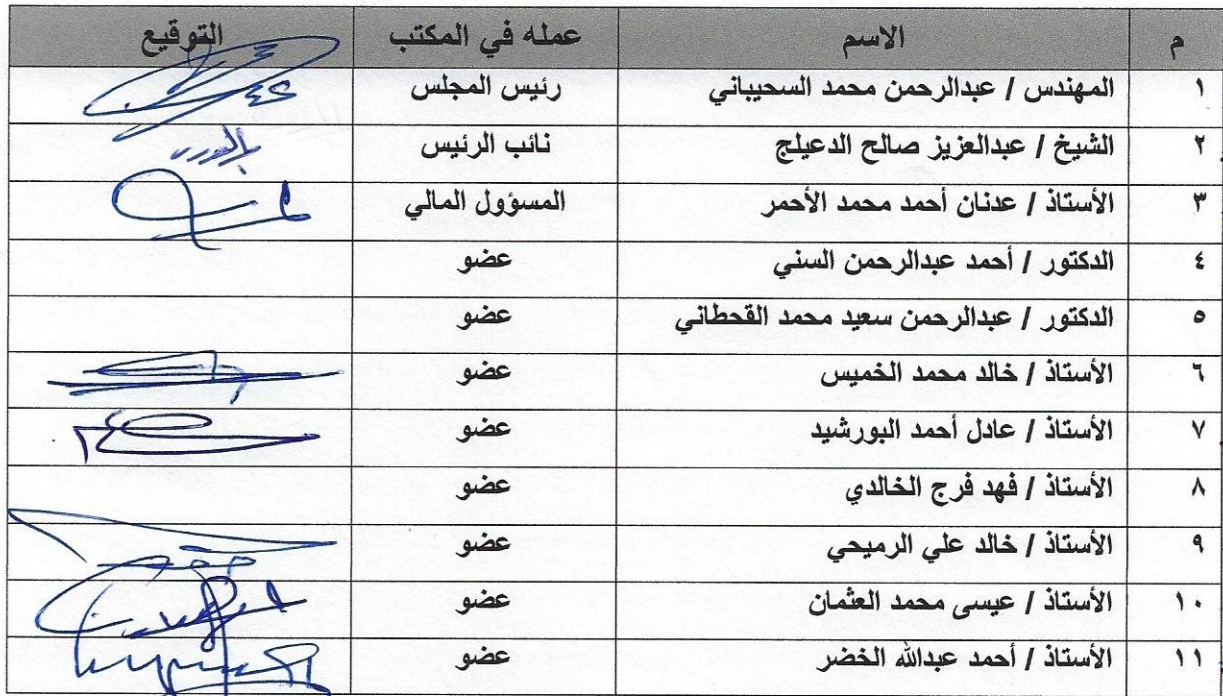 م الاسم عمله في المكتب التوقيع
١ المهندس / عبدالرحمن محمد السحيباني رئيس المجلس
٢ الشيخ / عبدالعزيز صالح الدعيلج نائب الرئيس
٣ الأستاذ / عدنان أحمد محمد الأحمر المسؤول المالي
٤ الدكتور / أحمد عبدالرحمن السني عضو
٥ الدكتور / عبدالرحمن سعيد محمد القحطاني عضو
٦ الأستاذ / خالد محمد الخميس عضو
٧ الأستاذ / عادل أحمد البورشيد عضو
٨ الأستاذ / فهد فرج الخالدي عضو
٩ الأستاذ / خالد علي الرميحي عضو
١٠ الأستاذ / عيسى محمد العثمان عضو
١١ الأستاذ / أحمد عبدالله الخضر عضو